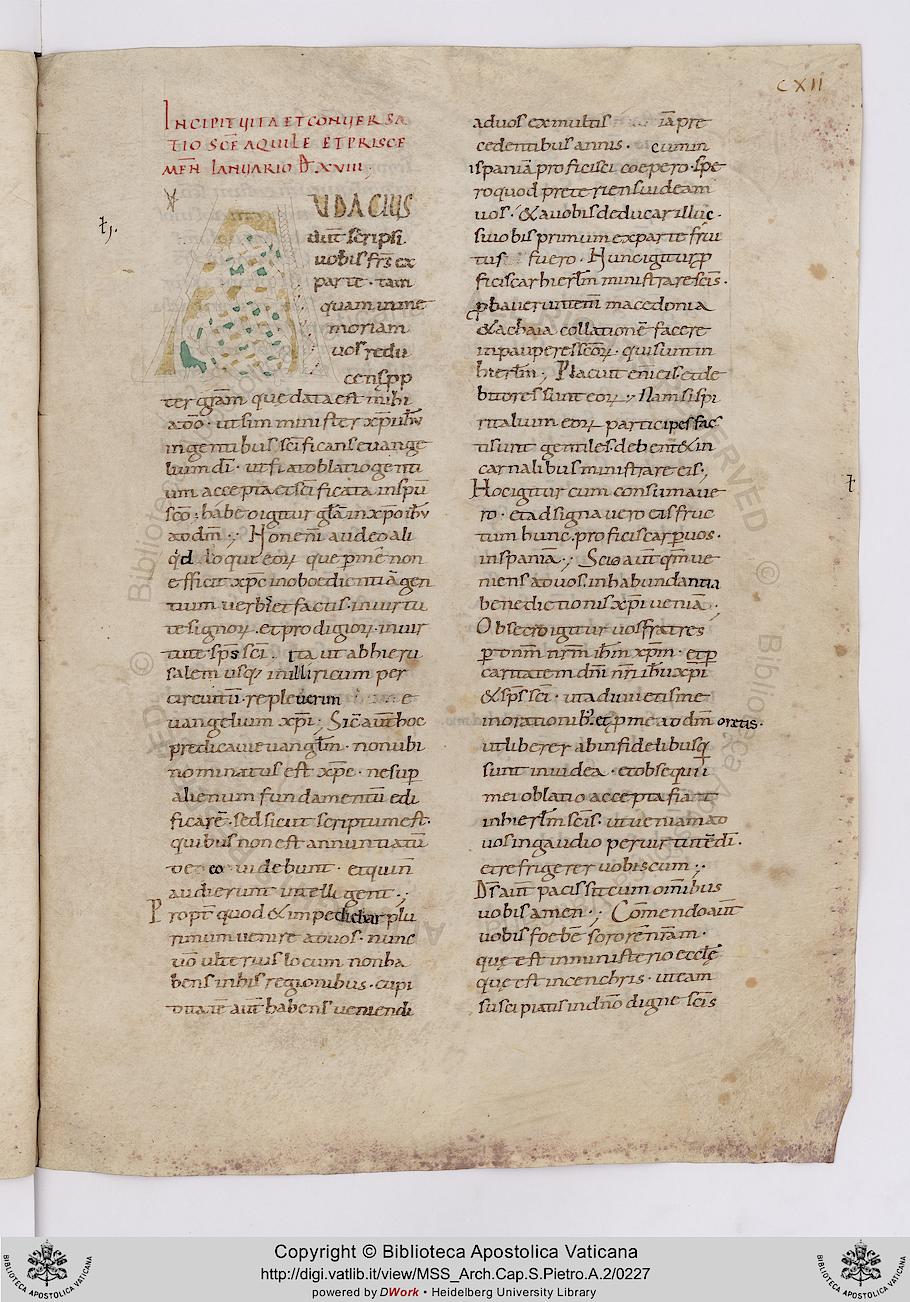 CXII
INCIPIT VITA ET CONVERSA
TIO SCE AQUILE ET PRISCE
MEN IANUARIO D XVIII
UDACIUS
aut scripsi
uobis frs ex
parte · tam
quam in me
moriam
uos redu
cens pp
ter gram que data est mihi
a do · ut sim minister xpi ihu
in gentibus scificans euange
lium di · ut fiat oblatio genti
um accepta et scificata in spu
sco · habeo igitur glam in xpo ihu
ad dm ·, Non eni audeo ali
qd loqui eoꝝ que p me non
efficit xpc in oboedientiā gen
tium uerbis et factis · in uirtu
te signoꝝ · et prodigioꝝ · in uir
tute sps sci · ita ut ab hieru
salem usq; in illiricum per
circuitū · repleuerim e
uangelium xpi ; Sic aut hoc
predicaui euanglm · non ubi
nominatus est xpc · ne sup
alienum fundamentū edi
ficarē · sed sicut scriptum est ·
quibus non est annuntiatū
de eo uidebunt · et qui n
audierunt intellegent ·,
Propt quod & impediebar plu
rimum uenire ad uos · nunc
uo ulterius locum non ha
bens in his regionibus · cupi
ditatē aut habens ueniendi
ad uos ex multis iā pre
cedentibus annis · cum in
ispaniā proficisci coepero · spe
ro quod preteriens uideam
uos · & a uobis deducar illuc ·
si uobis primum ex parte frui
tus fuero · Nunc igitur p
ficiscar hierlm ministrare scis ·
pbauerunt eni macedonia
& achaia collationē facere
in pauperes scoꝝ · qui sunt in
hierlm ; Placuit eni eis et de
bitores sunt eoꝝ ; Nam si spi
ritalium eoꝝ participes fac
ti sunt gentiles · debent & in
carnalibus ministrare eis ·,
Hoc igitur cum consumaue
ro · et adsignauero eis fruc
tum hunc · proficiscar p uos ·
in spaniā ·, Scio aut qm ue
niens ad uos · in habundantia
benedictionis xpi ueniā ·,
Obsecro igitur uos fratres
p dnm nrm ihm xpm · et p
caritatem dni nri ihu xpi
& sps sci · ut adiuuetis me
in orationib; et p me ad dm oretis ·
ut liberer ab infidelibus q
sunt in iudea · et obsequii
mei oblatio accepta fiat
in hierlm scis · ut ueniam ad
uos in gaudio per uirtutē di ·
et refrigerer uobiscum ·,
Ds aut pacis sit cum omibus
uobis amen ·, Comendo aut
uobis foebē sororē nram ·
que est in ministerio eccle
que est in cencbris · ut eam
suscipiatis in dno digne scis
Copyright © Biblioteca Apostolica Vaticana
http://digi.vatlib.it/view/MSS_Arch.Cap.S.Pietro.A.2/0227
powered by DWork • Heidelberg University Library